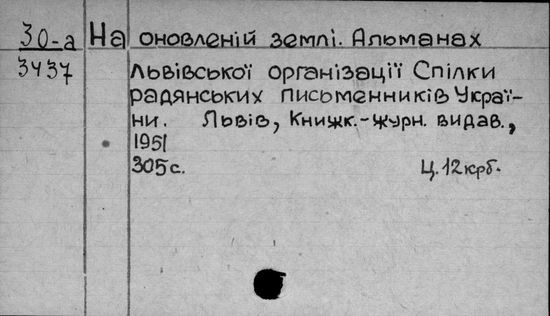 30-а На оновленій землі. Альманах
3437 Львівської організації Спілки
радянських письменників Украї-
ни. Львів, Книжк.-журн. видав.,
1951
305 с. Ц. 12 крб.